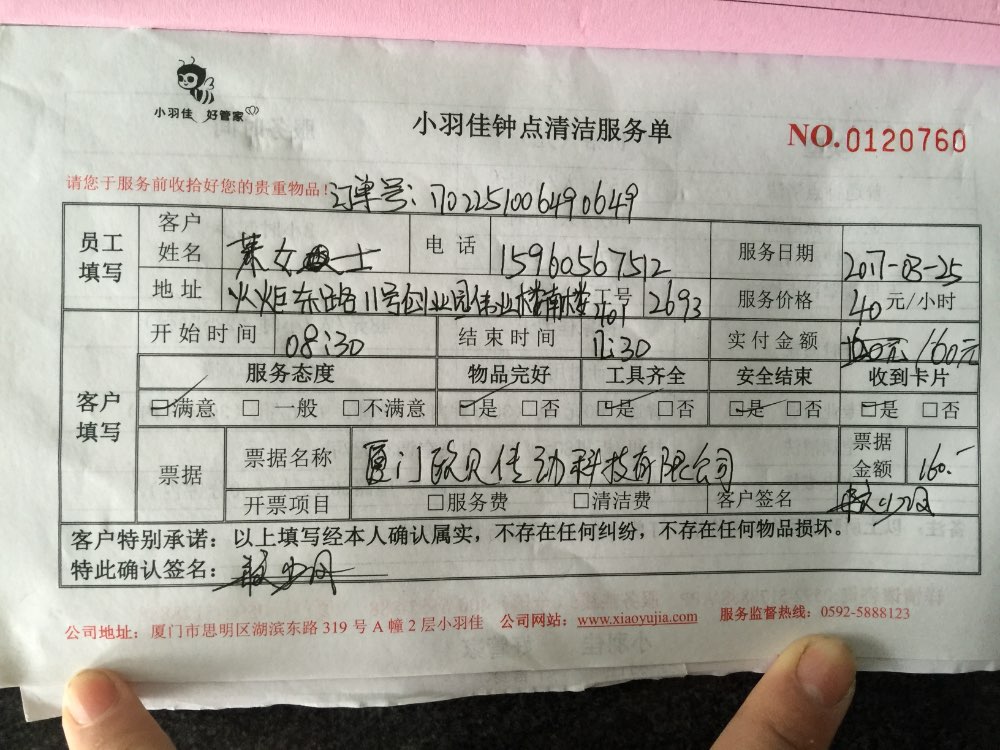 小羽佳 好管家
小羽佳钟点清洁服务单
NO.0120760
请您于服务前收拾好您的贵重物品! 订单号:1702251006490649
员工填写 客户姓名 女士 电话 15960567512 服务日期 2017-03-25
地址 火炬东路11号创业园伟业楼南楼701 工号 2693 服务价格 40元/小时
客户填写 开始时间 08:30 结束时间 11:30 实付金额 160元
服务态度 物品完好 工具齐全 安全结束 收到卡片
☑满意 □一般 □不满意 ☑是 □否 ☑是 □否 ☑是 □否 ☑是 □否
票据 票据名称 厦门欧贝传动科技有限公司 票据金额 160.-
开票项目 □服务费 □清洁费 客户签名
客户特别承诺:以上填写经本人确认属实,不存在任何纠纷,不存在任何物品损坏。
特此确认签名:
公司地址:厦门市思明区湖滨东路 319 号 A 幢 2 层小羽佳 公司网站:www.xiaoyujia.com 服务监督热线:0592-5888123